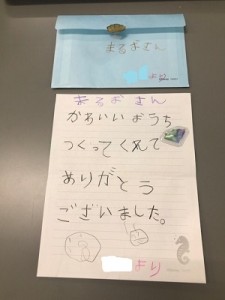 まるおさん
より
まるおさん
かわいいおうち
つくってくれて
ありがとう
ございました。
より